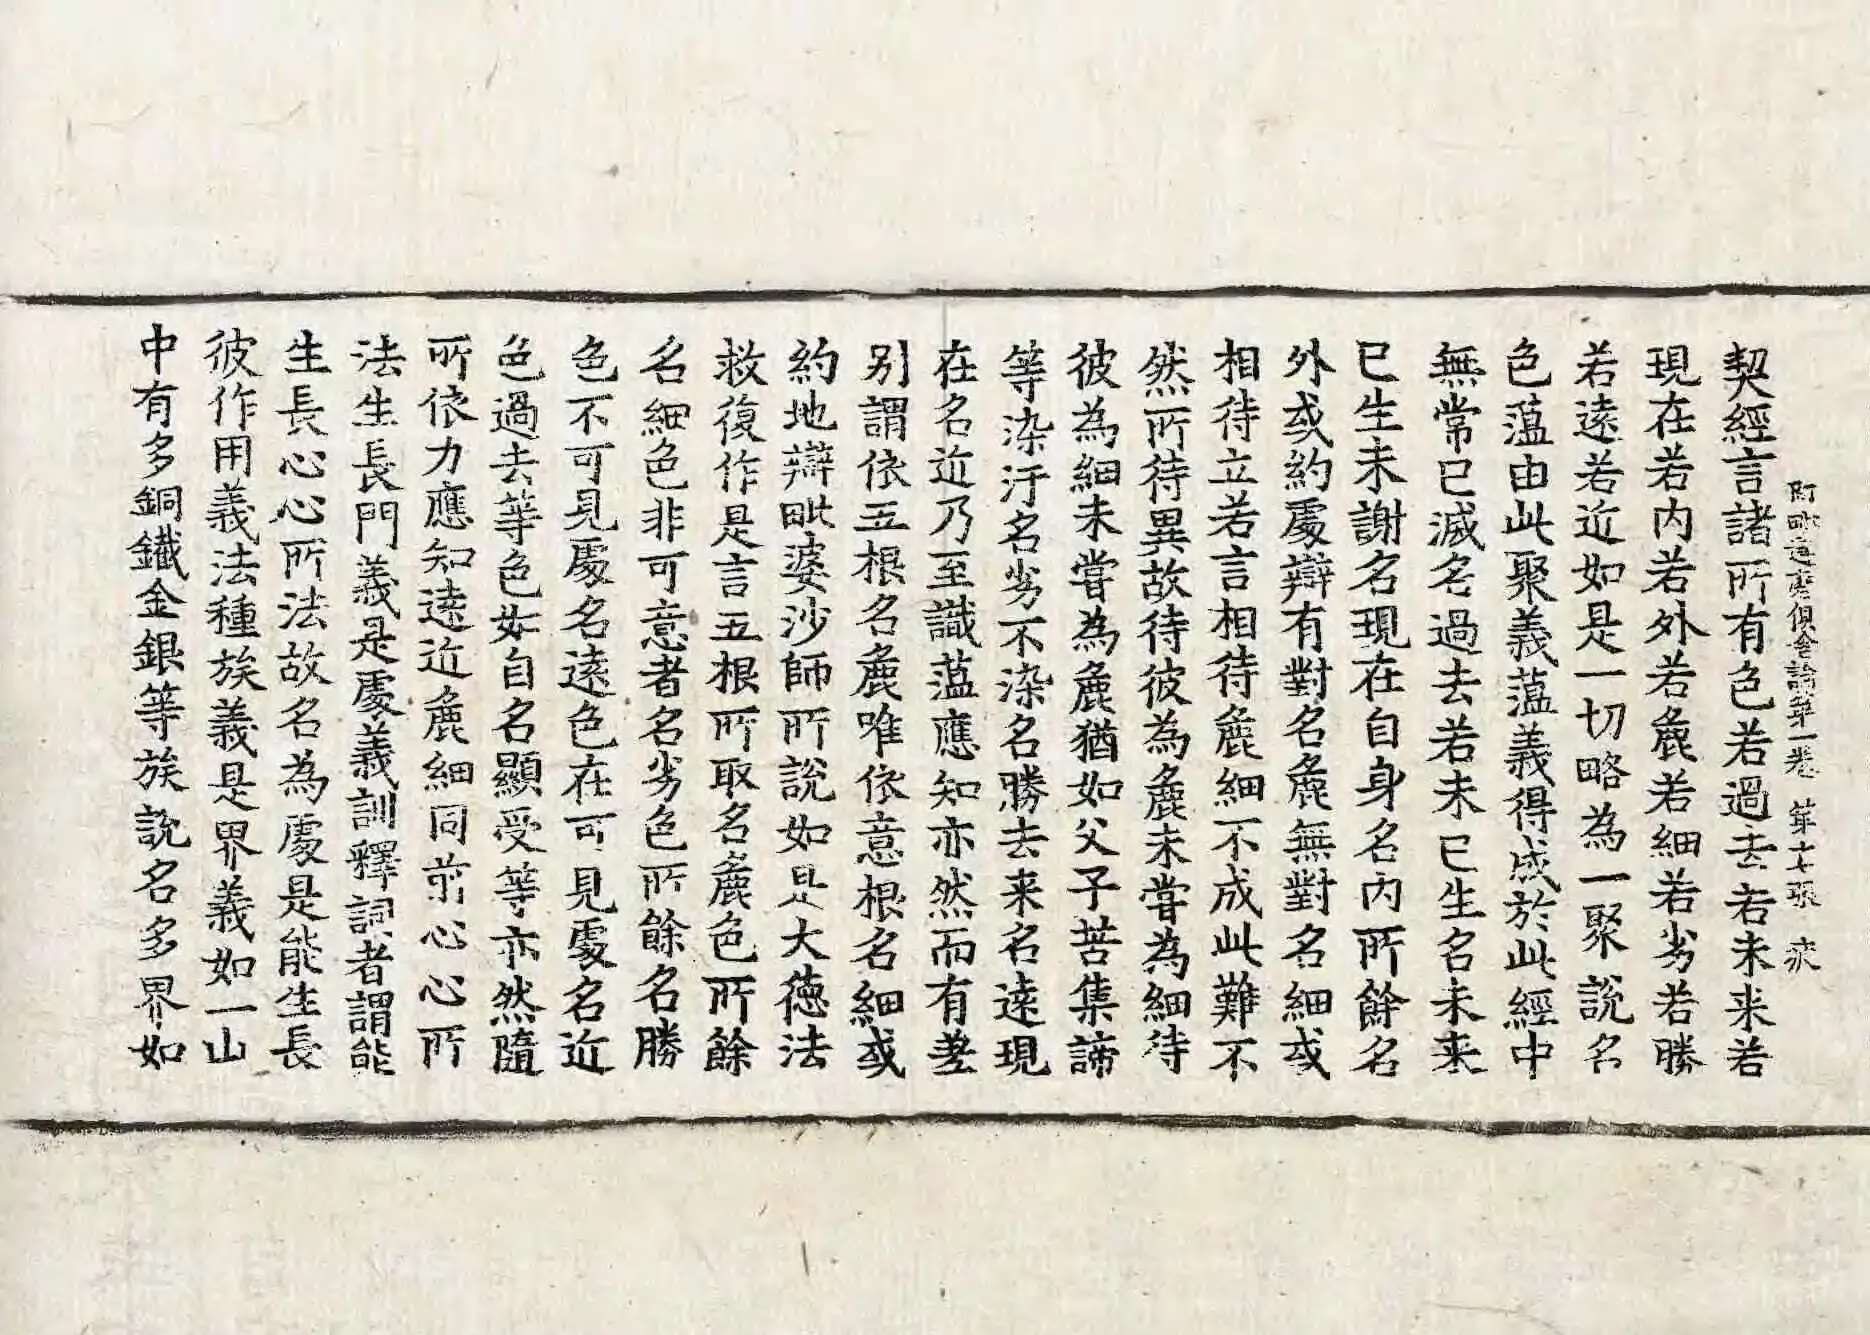 阿毗達磨俱舍論第一卷 第十七張 疲
契經言諸所有色若過去若未来若
現在若内若外若麁若細若劣若勝
若遠若近如是一切略為一聚說名
色藴由此聚義藴義得成於此經中
無常已滅名過去若未已生名未来
已生未謝名現在自身名内所餘名
外或約處辯有對名麁無對名細或
相待立若言相待麁細不成此難不
然所待異故待彼為麁未甞為細待
彼為細未甞為麁猶如父子苦集諦
等染汙名劣不染名勝去来名遠現
在名近乃至識藴應知亦然而有差
别謂依五根名麁唯依意根名細或
約地辯毗婆沙師所說如是大德法
救復作是言五根所取名麁色所餘
名細色非可意者名劣色所餘名勝
色不可見處名遠色在可見處名近
色過去等色如自名顯受等亦然隨
所依力應知遠近麁細同前心心所
法生長門義是處義訓釋詞者謂能
生長心心所法故名為處是能生長
彼作用義法種族義是界義如一山
中有多銅鐵金銀等族說名多界如